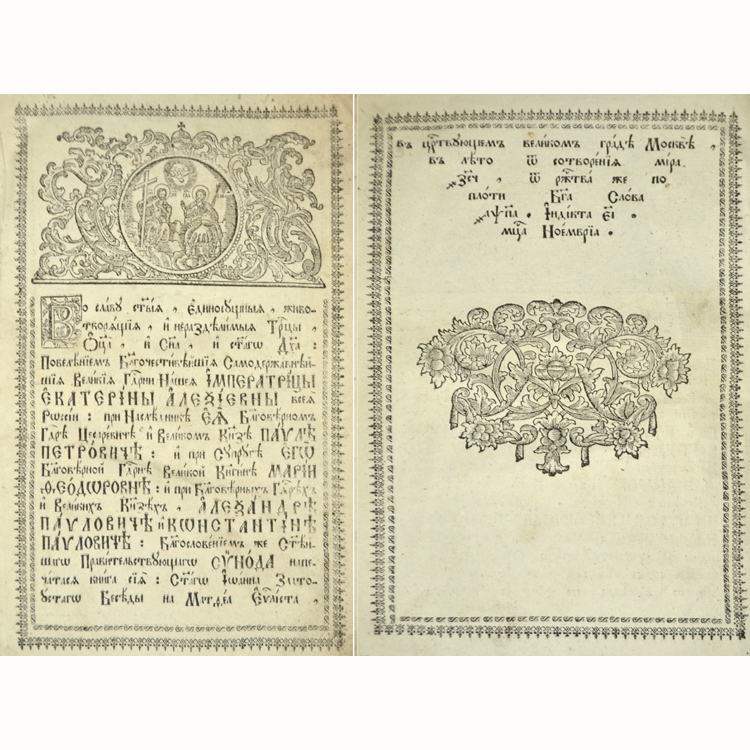 Во славу ст҃ыѧ, Єдиносꙋщныѧ, живо-
творѧщїѧ, и нераздѣлимыѧ Трⷪ҇цы,
Ѻц҃а, и Сн҃а, и ст҃агѡ Дх҃а:
Повелѣнїемъ Бл҃гочестивѣйшїѧ Самодержавнѣй-
шїѧ Великїѧ Гдⷭ҇рни Нашеѧ ІМПЕРАТРИЦЫ
ЄКАТЕРІНЫ АЛЕѮІЕВНЫ всеѧ
Рѡссїи: при Наслѣдникѣ ЄѦ̀ Благовѣрномъ
Гдⷭ҇рѣ Цесаревичѣ и Великомъ Кн҃зѣ ПАѴЛѢ
ПЕТРОВИЧѢ: и при Сꙋпрꙋгѣ ЄГѠ̀
Благовѣрной Гдⷭ҇рнѣ Великой Кнгинѣ МАРІИ
ѲЕОДѠРОВНѢ: и при Благовѣрныхъ Гдⷭ҇рѣхъ
и Великихъ Кн҃зѣхъ, АЛЕѮАНДРѢ
ПАѴЛОВИЧѢ и КѠНСТАНТІНѢ
ПАѴЛОВИЧѢ: Благословенїемъ же Ст҃ѣй-
шагѡ Правительствꙋющагѡ СѴНОДА напе-
чатасѧ книга сїѧ: Ст҃агѡ Іѡанна Злато-
ꙋстагѡ Бесѣды на Матѳеа Єѵⷢ҇листа,
въ црⷭ҇твꙋющемъ великомъ градѣ Москвѣ,
въ лѣто ѿ сотворенїѧ мїра
҂зсч, ѿ ржⷭ҇тва же по
плоти Бг҃а Слова
҂аѱпа. Індїкта еі
мцⷭ҇а Ноемврїа.